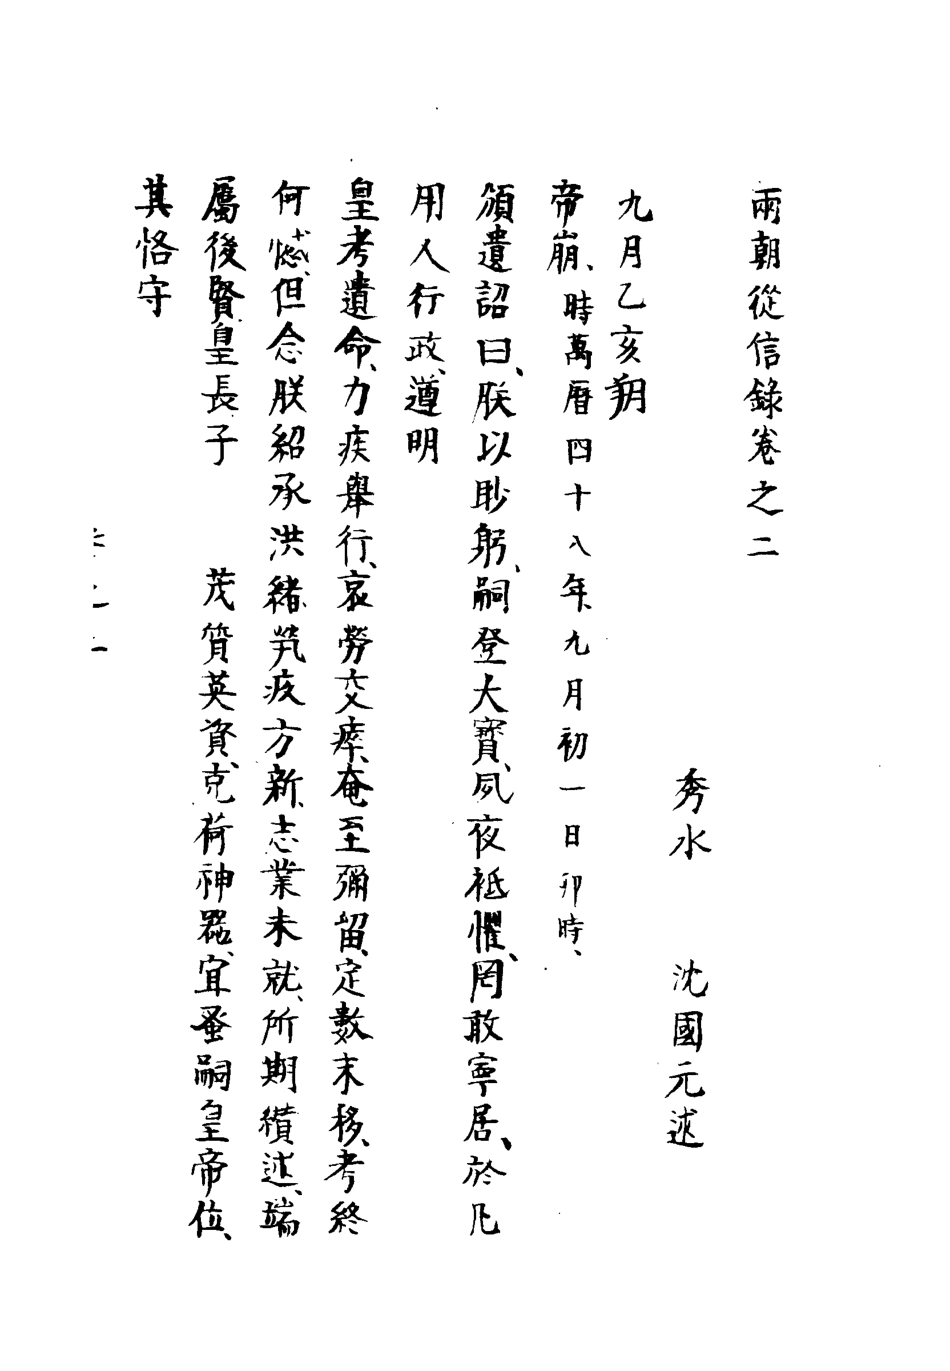 兩朝從信錄卷之二
秀水　沈國元述
九月乙亥朔
帝崩、時萬曆四十八年、九月初一日卯時、
頒遺詔曰、朕以眇躬、嗣登大寶、夙夜祗懼、罔敢寧居、於凡
用人行政、遵明
皇考遺命、力疾舉行、哀勞交瘁、奄至彌留、定數未移、考終
何憾、但念朕紹承洪緒、煢疚方新、志業未就、所期纘述、端
屬後賢、皇長子　　茂質英資、克荷神器、宜蚤嗣皇帝位、
其恪守
卷之二